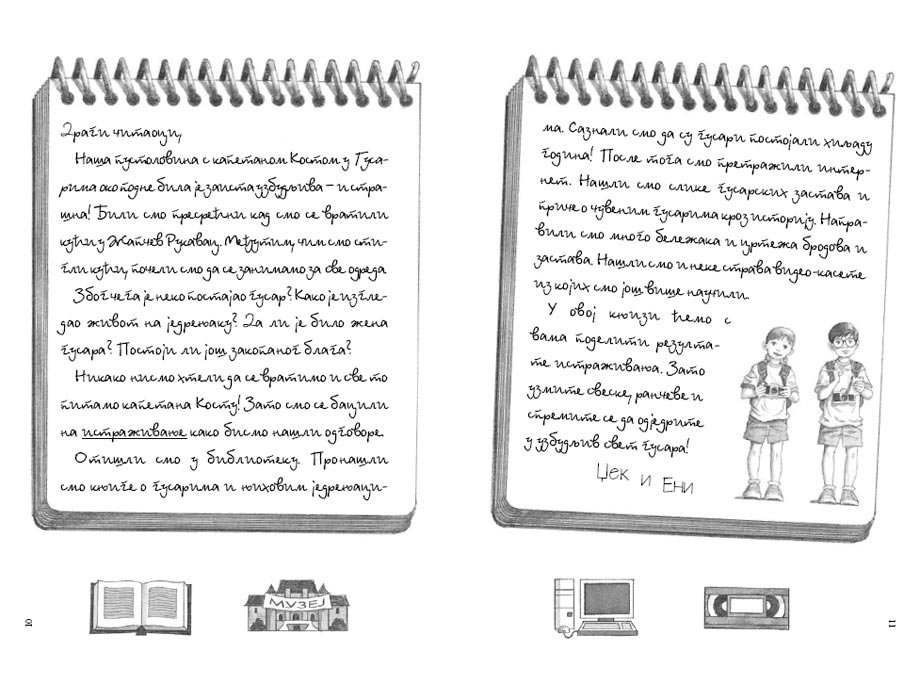 Драги читаоци,
Наша пустоловина с капетаном Костом у Гуса-
рима ако подне била је заиста узбудљива – и стра-
шна! Били смо пресрећни кад смо се вратили
кући у Жапчев Рукавац. Међутим, чим смо сти-
гли кући, почели смо да се занимамо за све одреда.
Због чега је неко постајао гусар? Како је изгле-
дао живот на једрењаку? Да ли је било жена
гусара? Постоји ли још закопаног блага?
Никако нисмо хтели да се вратимо и све то
питамо капетана Косту! Зато смо се бацили
на истраживање како бисмо нашли одговоре.
Отишли смо у библиотеку. Пронашли
смо књиге о гусарима и њиховим једрењаци-
10
ма. Сазнали смо да су гусари постојали хиљаду
година! После тога смо претражили интер-
нет. Нашли смо слике гусарских застава и
приче о чувеним гусарима кроз историју. Напра-
вили смо много бележака и цртежа бродова и
застава. Нашли смо и неке страва видео-касете
из којих смо још више научили.
У овој књизи ћемо с
вама поделити резулта-
те истраживања. Зато
узмите свеске, ранчеве и
спремите се да одједрите
у узбудљив свет гусара!
Џек и Ени
МУЗЕЈ
11